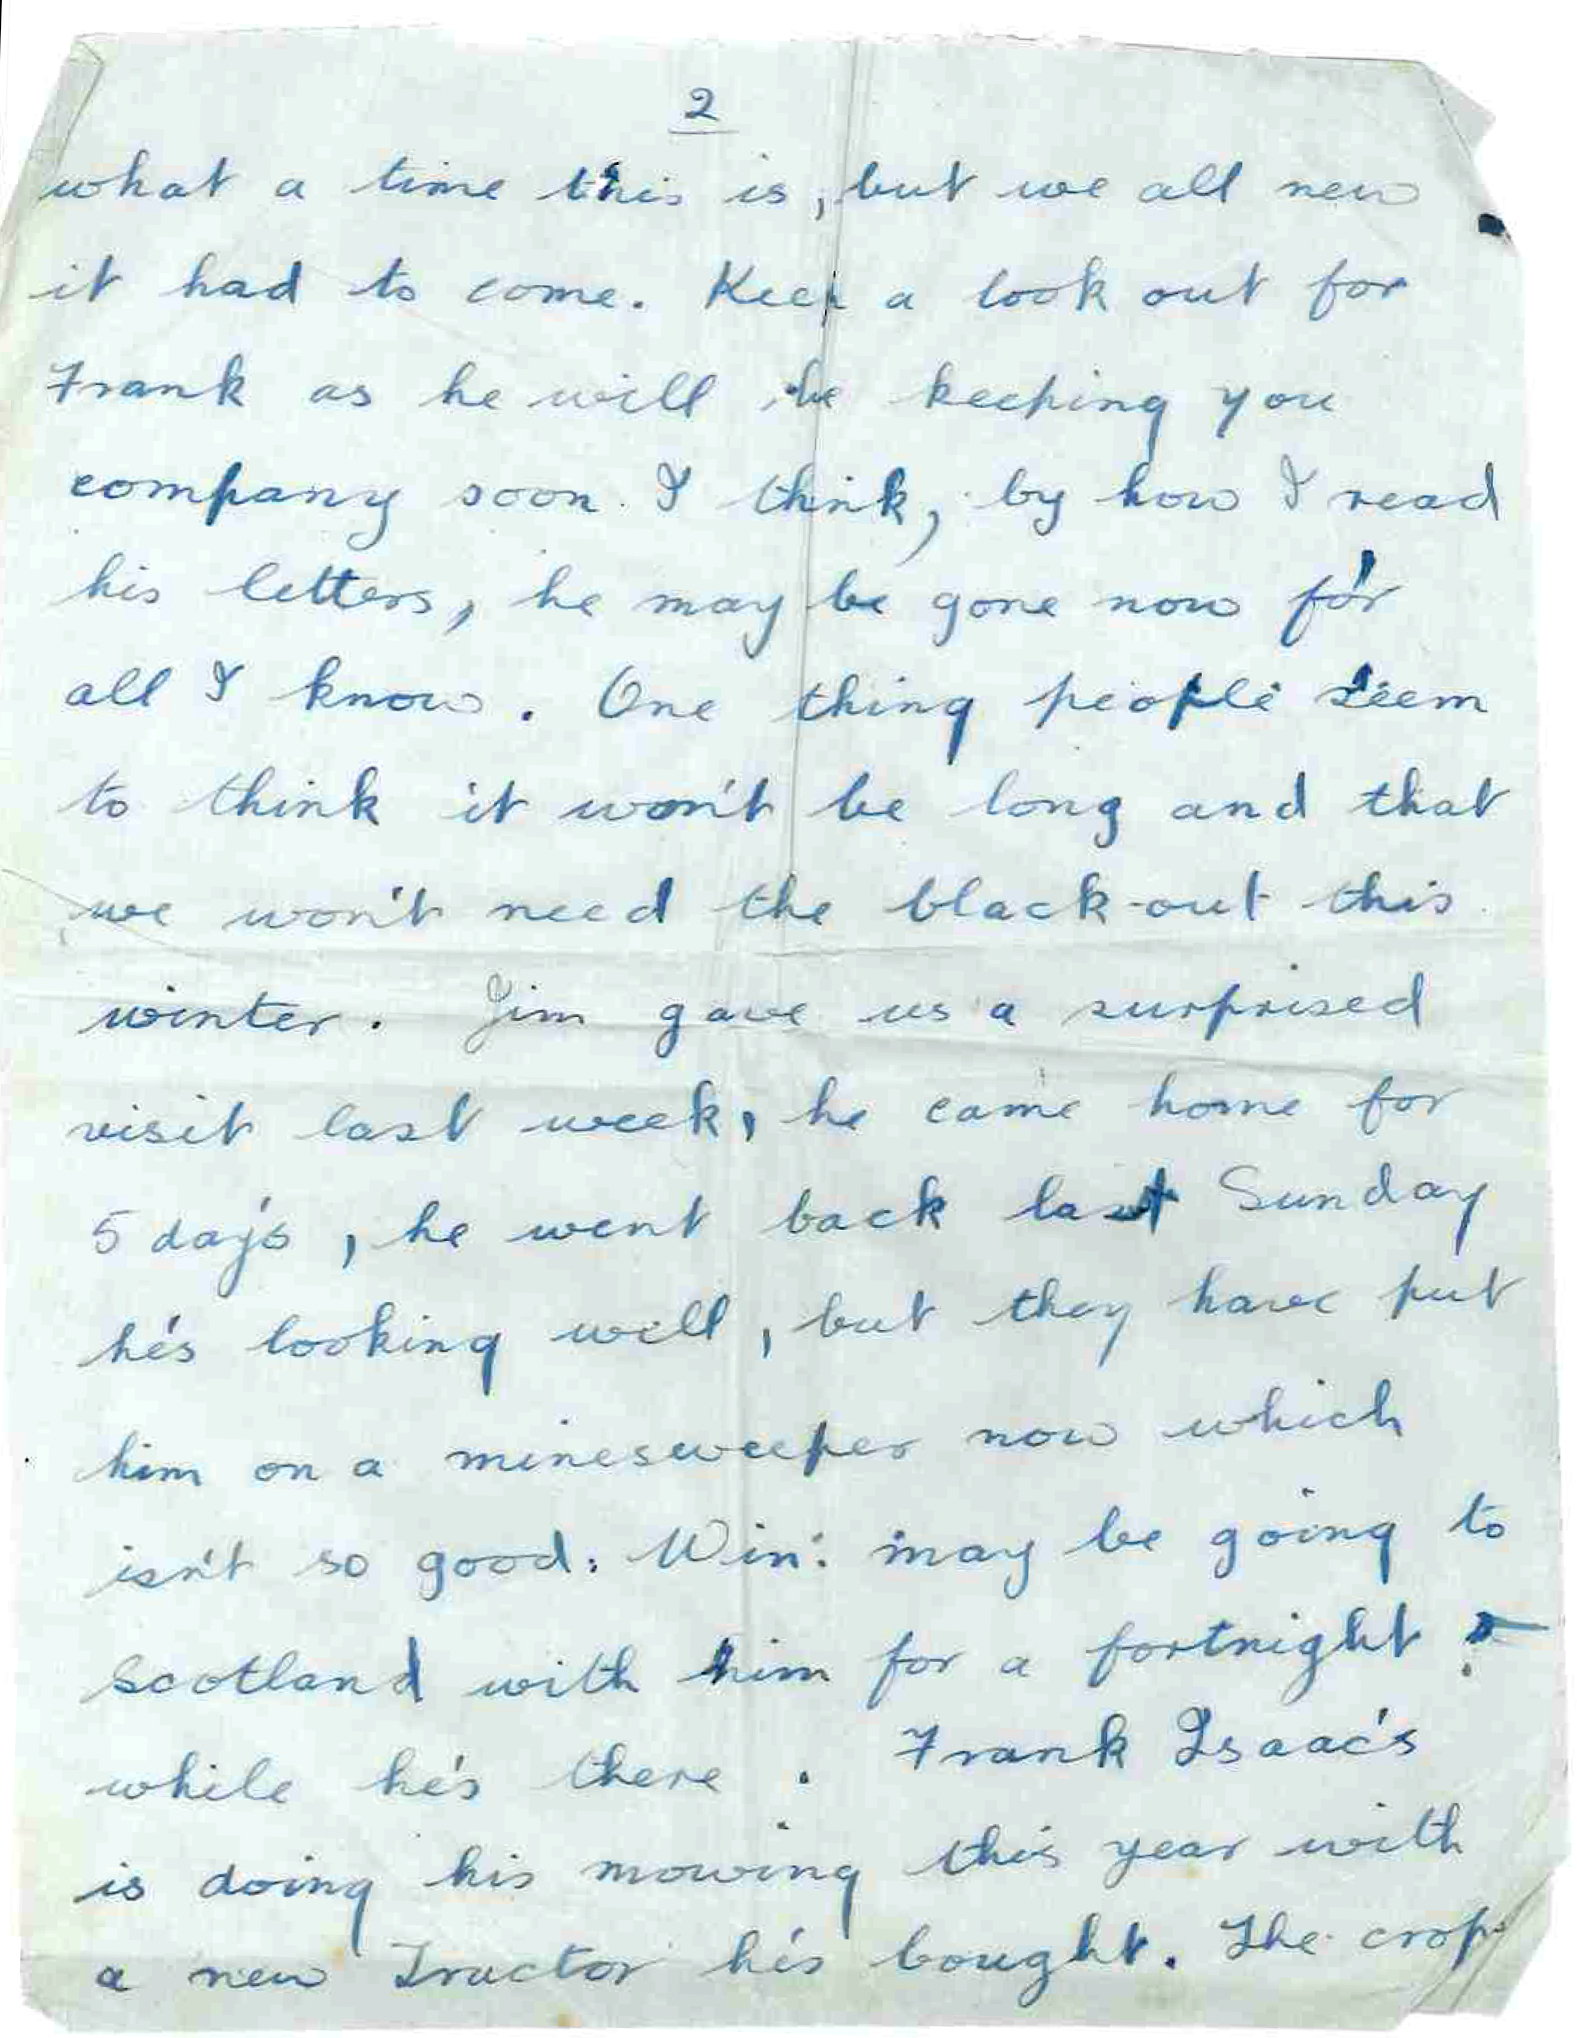 2
what a time this is, but we all new
it had to come. Keep a look out for
Frank as he will be keeping you
company soon. I think, by how I read
his letters, he may be gone now for
all I know. One thing people seem
to think it won't be long and that
we won't need the black-out this
winter. Jim gave us a surprised
visit last week, he came home for
5 day's, he went back last Sunday
he's looking well, but they have put
him on a minesweeper now which
isn't so good. Win. may be going to
Scotland with him for a fortnight
while he's there. Frank Isaac's
is doing his mowing this year with
a new Tructor he's bought. The crop